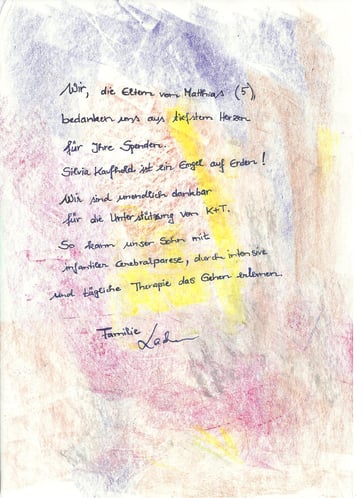 Wir, die Eltern von Matthias (5),
bedanken uns aus tiefstem Herzen
für Ihre Spenden.
Silvia Kaufhold ist ein Engel auf Erden!
Wir sind unendlich dankbar
für die Unterstützung von K+T.
So kann unser Sohn mit
infantiler Cerebralparese, durch intensive
und tägliche Therapie das Gehen erlernen.
Familie